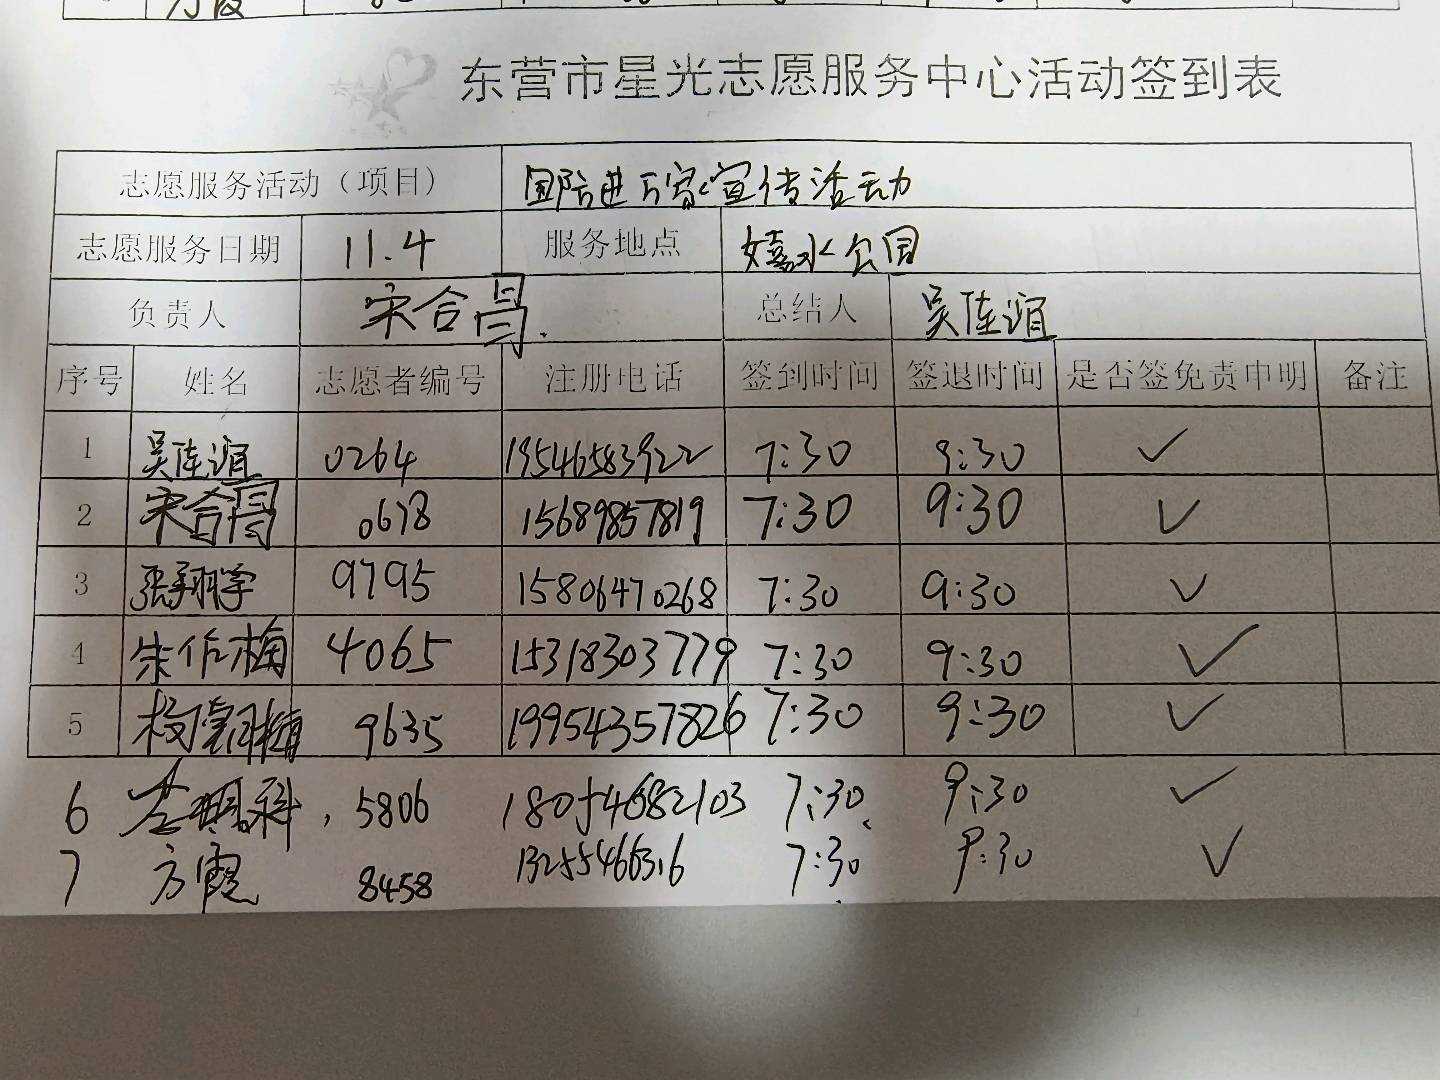 方霞
东营市星光志愿服务中心活动签到表
志愿服务活动（项目） 国防进万家宣传活动
志愿服务日期 11.4 服务地点 嬉水公园
负责人 宋合昌. 总结人 吴佳谊
序号 姓名 志愿者编号 注册电话 签到时间 签退时间 是否签免责申明 备注
1 吴佳谊 0264 19546583922 7:30 9:30 ✓
2 宋合昌 0678 15689857819 7:30 9:30 ✓
3 张翔学 9795 15806470268 7:30 9:30 ✓
4 朱作梅 4065 15318303779 7:30 9:30 ✓
5 9635 19954357826 7:30 9:30 ✓
6 5806 18054682103 7:30 9:30 ✓
7 方霞 8458 13255466316 7:30 9:30 ✓